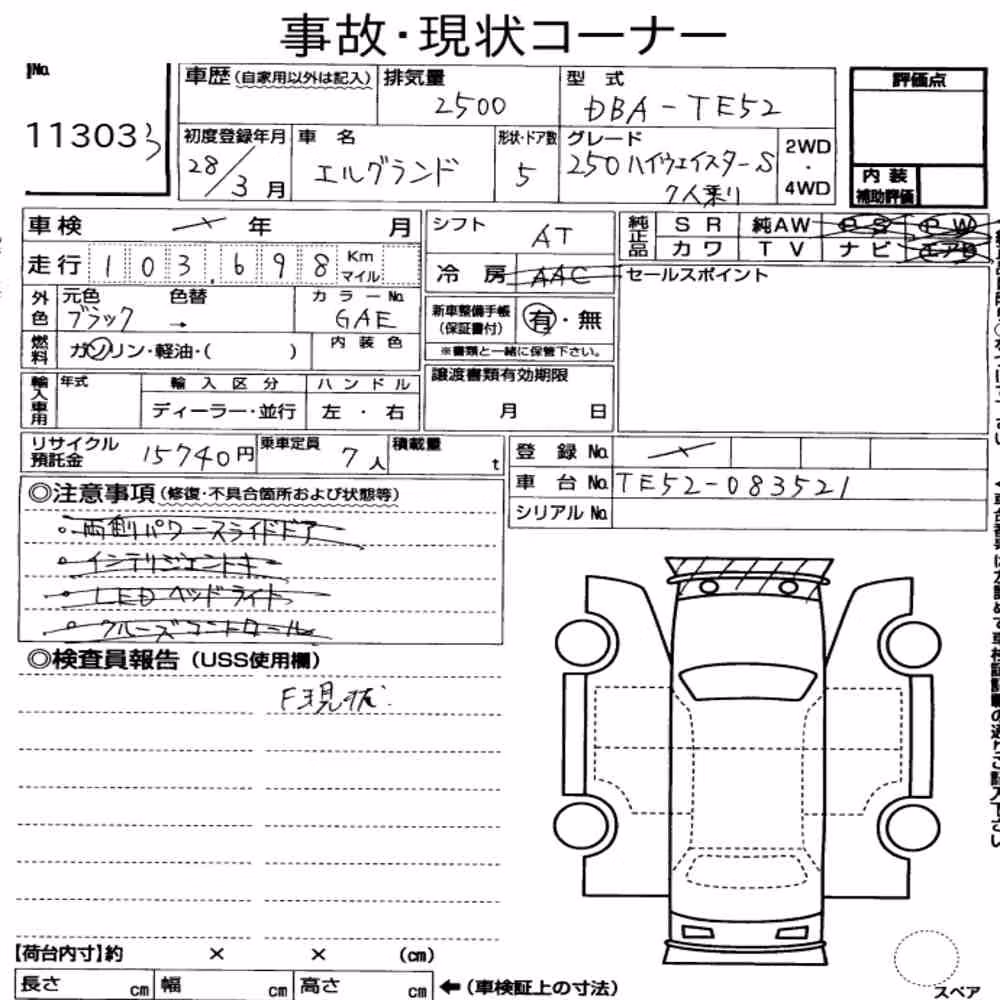 事故・現状コーナー
No.
113033
車歴(自家用以外は記入)
排気量
2500
型式
DBA-TE52
評価点
初度登録年月
28/3月
車名
エルグランド
形状・ドア数
5
グレード
250ハイウェイスターS
7人乗り
2WD
・
4WD
内装
補助評価
車検 年 月
シフト
AT
純正品
SR 純AW PS PW
カワ TV ナビ エアB
走行 103,698 Km マイル
冷房 AAC
セールスポイント
外色
元色 色替
ブラック →
カラーNo.
GAE
新車整備手帳
(保証書付)
有・無
※書類と一緒に保管下さい。
燃料
ガソリン・軽油・( )
内装色
輸入車用
年式
輸入区分
ディーラー・並行
ハンドル
左・右
譲渡書類有効期限
月 日
リサイクル
預託金
15740円
乗車定員
7人
積載量
t
登録No.
車台No. TE52-083521
シリアルNo.
◎注意事項(修復・不具合箇所および状態等)
。両側パワースライドドア
。インテリジェントキー
。LEDヘッドライト
。クルーズコントロール
◎検査員報告(USS使用欄)
F現状
【荷台内寸】約 × × (cm)
長さ cm 幅 cm 高さ cm ←(車検証上の寸法)
スペア